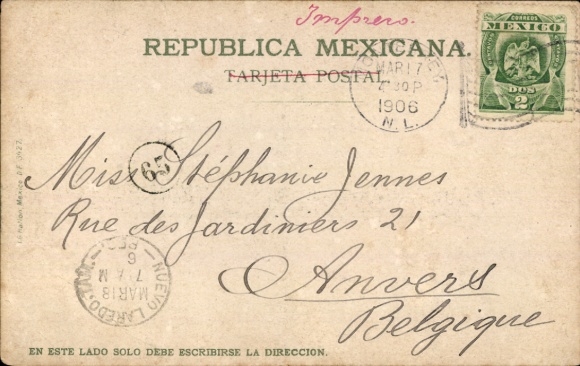 Impreso.
CORREOS
MEXICO
DOS
2
REPUBLICA MEXICANA.
TARJETA POSTAL.
MAR 17
4 30 P
1906
N. L.
65
Miss Stéphanie Jennes
Rue des Jardiniers 21
Anvers
Belgique
NUEVO LAREDO, TAM.
MAR 18
7 A M
6
EN ESTE LADO SOLO DEBE ESCRIBIRSE LA DIRECCION.